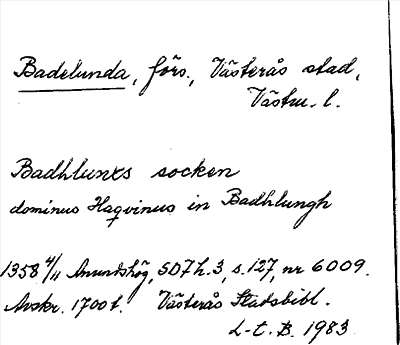 Badelunda, förs., Västerås stad,
Västm. l.
Badhlunxs socken
dominus Haqvinus in Badhlungh
1358 4/11 Anundshög, SD7h.3, s.127, nr 6009.
Avskr. 1700t. Västerås Stadsbibl.
L-t. B. 1983